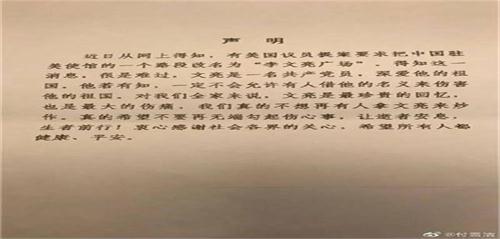 声 明
近日从网上得知，有美国议员提案要求把中国驻
美使馆的一个路段改名为“李文亮广场”，得知这一
消息，很是难过，文亮是一名共产党员，深爱他的祖
国，他若有知，一定不会允许有人借他的名义来伤害
他的祖国，对我们全家来说，文亮是最珍贵的回忆，
也是最大的伤痛，我们真的不想再有人拿文亮来炒
作，真的希望不要再无端勾起伤心事，让逝者安息，
生者前行！衷心感谢社会各界的关心，希望所有人都
健康、平安。
@付雪洁